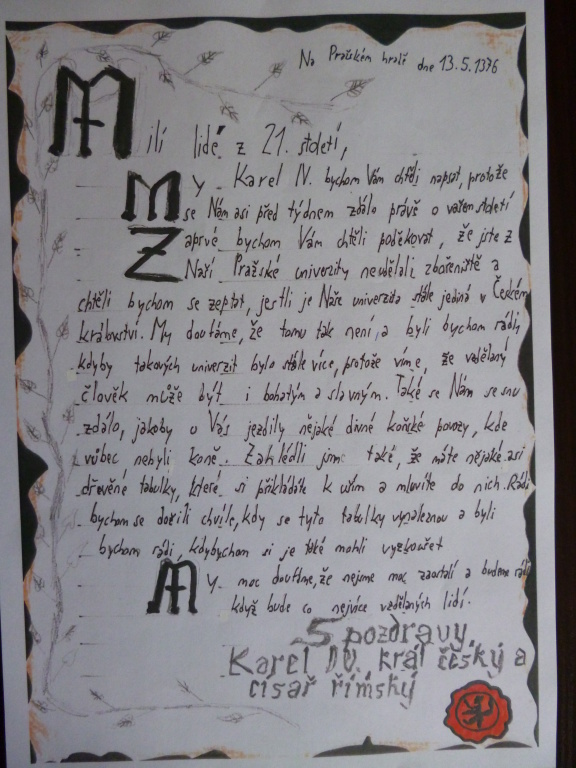 Na Pražském hradě dne 13.5.1376
Milí lidé z 21. století,
My Karel IV. bychom Vám chtěli napsat, protože
se Nám asi před týdnem zdálo právě o vašem století
Zaprvé bychom Vám chtěli poděkovat, že jste z
Naší Pražské univerzity neudělali zbořeniště a
chtěli bychom se zeptat, jestli je Naše univerzita stále jediná v Českém
království. My doufáme, že tomu tak není, a byli bychom rádi,
kdyby takových univerzit bylo stále více, protože víme, že vzdělaný
člověk může být i bohatým a slavným. Také se Nám ve snu
zdálo, jakoby u Vás jezdily nějaké divné koňské povozy, kde
vůbec nebyli koně. Zahlédli jsme také, že máte nějaké asi
dřevěné tabulky, které si přikládáte k uším a mluvíte do nich. Rádi
bychom se dožili chvíle, kdy se tyto tabulky vynaleznou a byli
bychom rádi, kdybychom si je také mohli vyzkoušet
My moc doufáme, že nejsme moc zaostalí a budeme rádi
když bude co nejvíce vzdělaných lidí.
S pozdravy,
Karel IV. král český a
císař římský